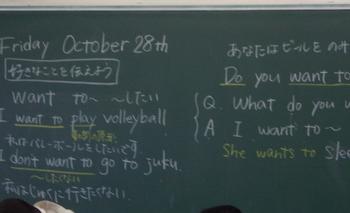 Friday October 28th
好きなことを伝えよう
want to~ ~したい
I want to play volleyball
動詞の原形
私はバレーボールをしたいです
I don't want to go to juku.
~したくない
私はじゅくに行きたくない.
あなたはピルを
Do you want to
Q. What do you w
A I want to~
She wants to slee